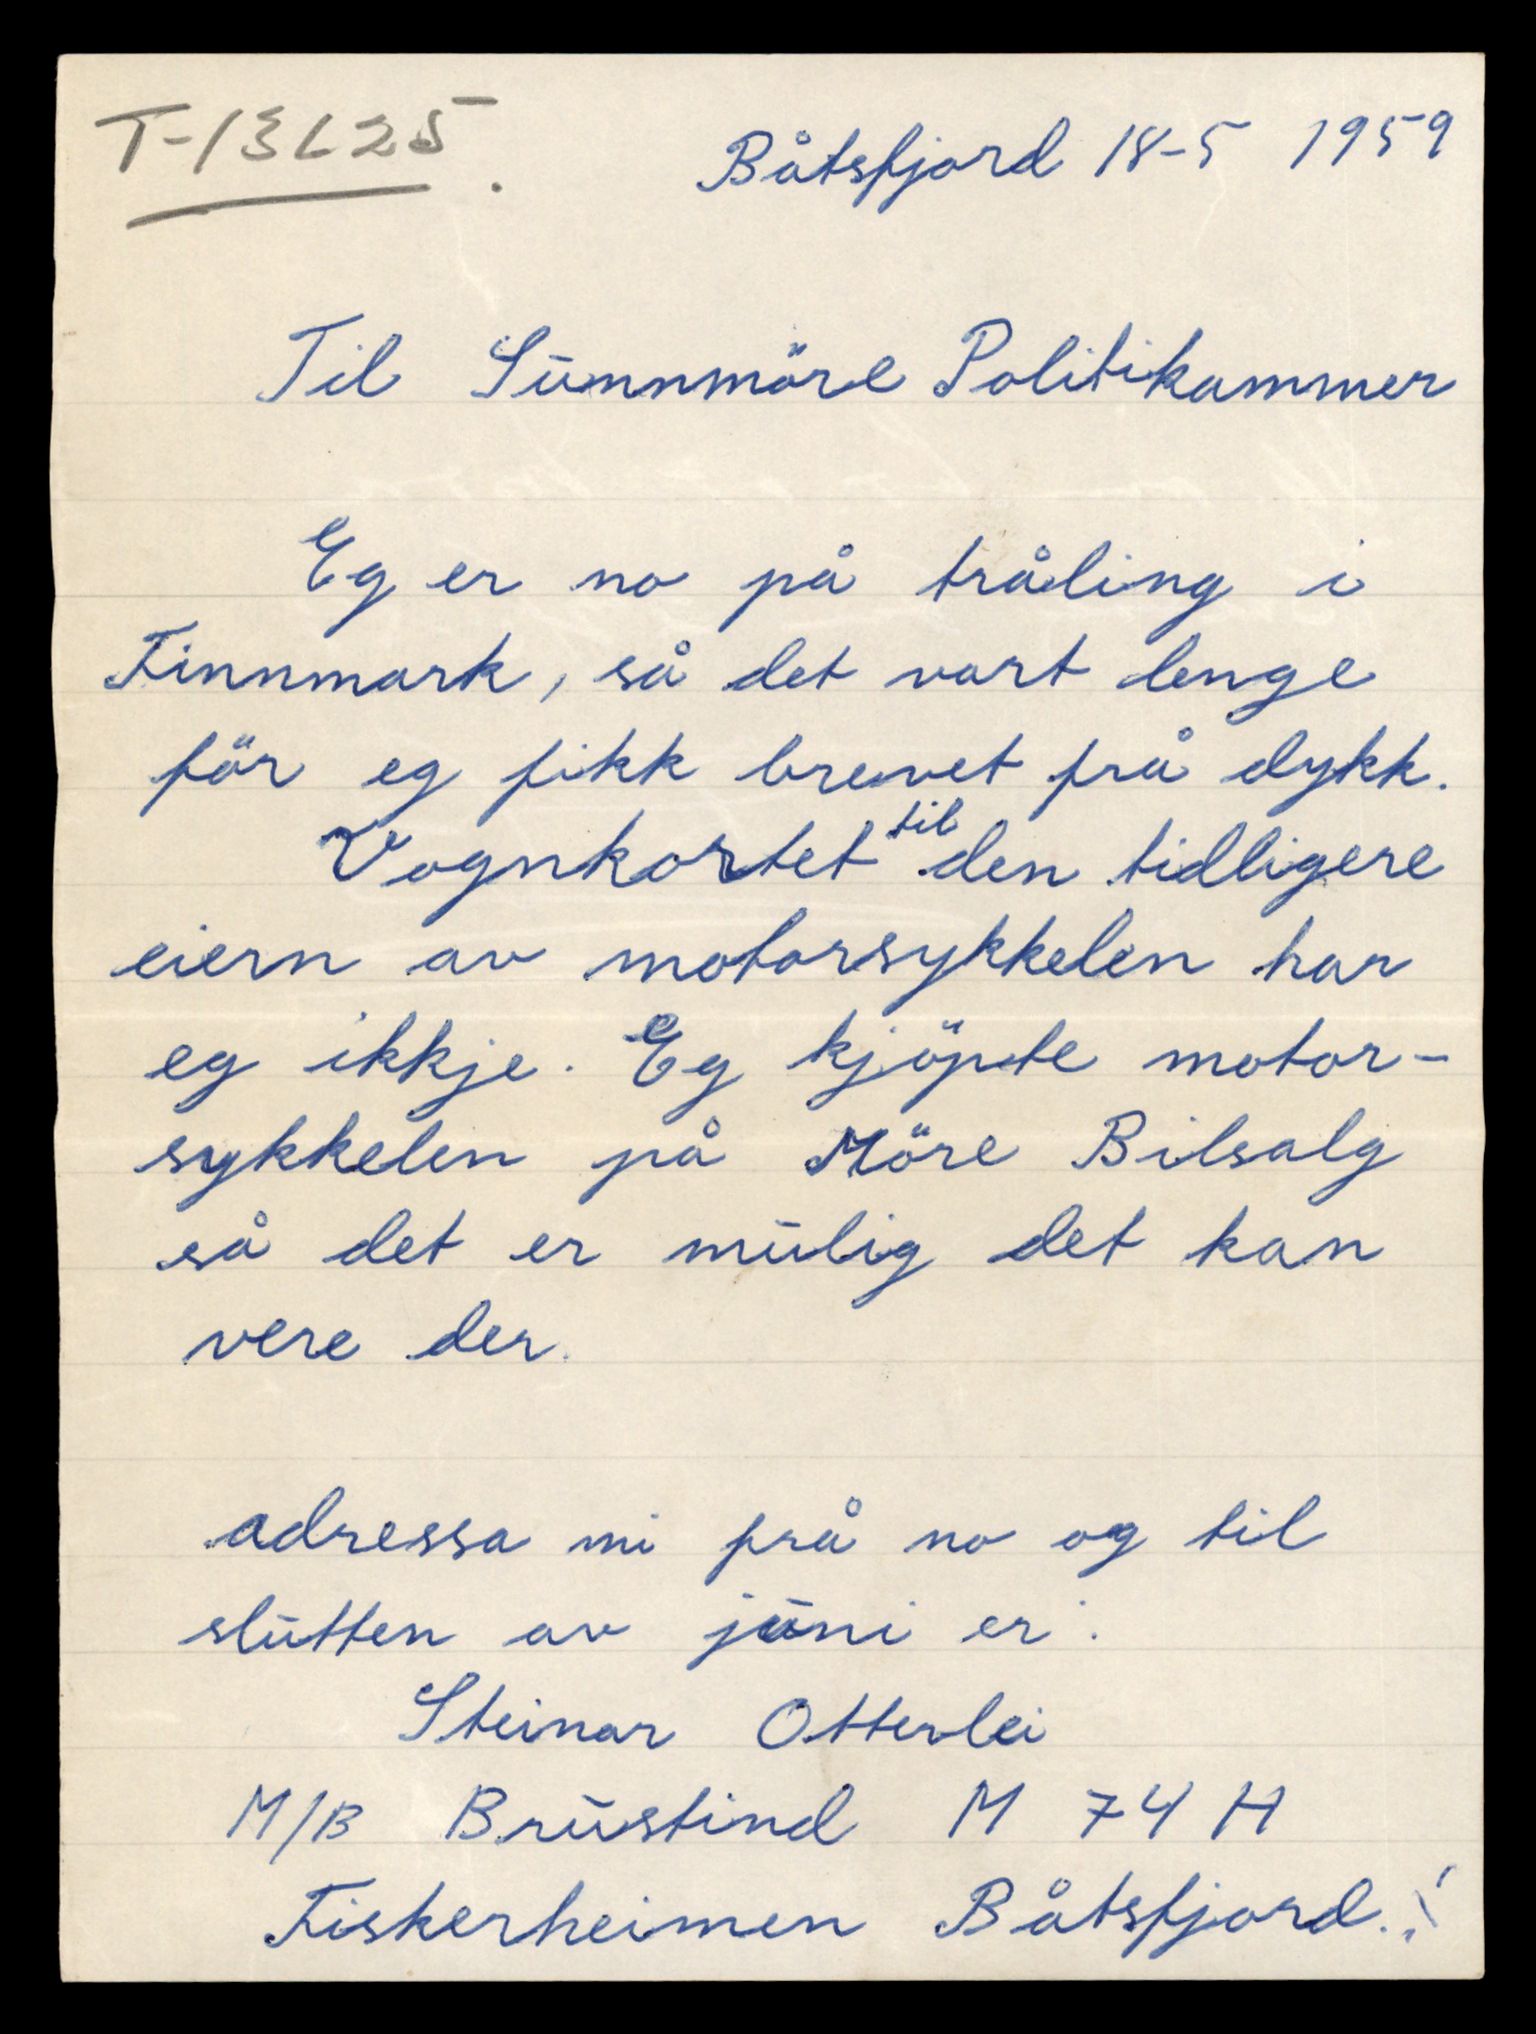 T-13625.
Båtsfjord 18-5 1959
Til Sunnmöre Politikammer
Eg er no på tråling i
Finnmark, så det vart lenge
för eg fikk brevet frå dykk.
Vognkortet til den tidligere
eiern av motorsykkelen har
eg ikkje. Eg kjöpte motor-
sykkelen på Möre Bilsalg
så det er mulig det kan
vere der.
adressa mi frå no og til
slutten av juni er:
Steinar Otterlei
M/B Brustind M 74 H
Fiskerheimen Båtsfjord.